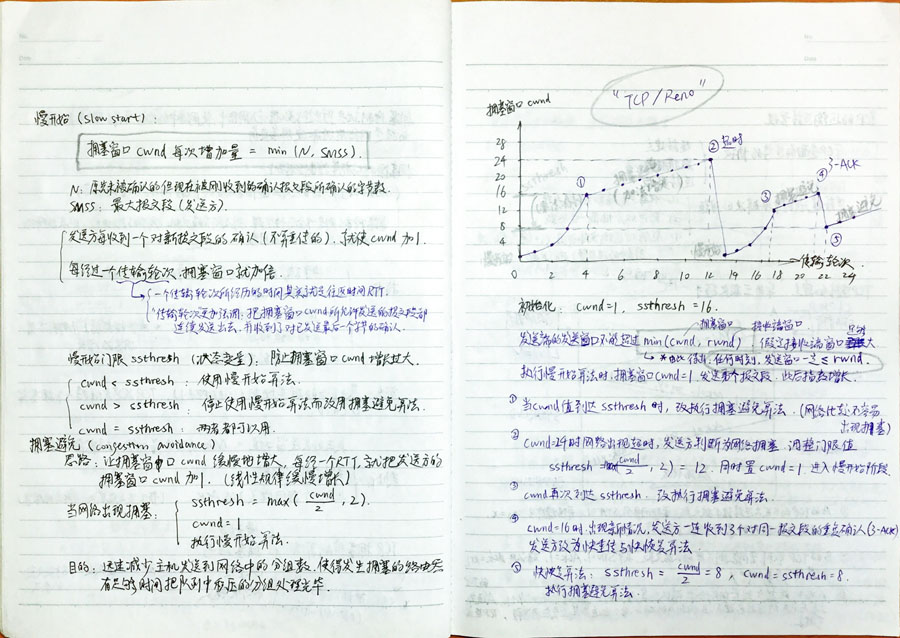 慢开始 (slow start) :
拥塞窗口 cwnd 每次增加量 = min (N, SMSS).
N: 原先未被确认的但现在被刚收到的确认报文段所确认的字节数.
SMSS: 最大报文段 (发送方).
发送方每收到一个对新报文段的确认 (不算重传的), 就使 cwnd 加1.
每经过一个传输轮次, 拥塞窗口就加倍.
一个传输轮次所经历的时间其实就是往返时间RTT.
"传输轮次"更加强调: 把拥塞窗口cwnd所允许发送的报文段都
连续发送出去, 并收到了对已发送最后一个字节的确认.
慢开始门限 ssthresh (状态变量): 防止拥塞窗口cwnd增长过大
cwnd < ssthresh : 使用慢开始算法.
cwnd > ssthresh : 停止使用慢开始算法而改用拥塞避免算法.
cwnd = ssthresh : 两者都可以用.
拥塞避免 (congestion avoidance)
思路: 让拥塞窗口 cwnd 缓慢地增大, 每经一个RTT, 就把发送方的
拥塞窗口 cwnd 加1. (线性规律缓慢增长)
当网络出现拥塞:
ssthresh = max ( cwnd/2 , 2).
cwnd = 1
执行慢开始算法.
目的: 迅速减少主机发送到网络中的分组数, 使得发生拥塞的路由器
有足够时间把队列中积压的分组处理完毕.
"TCP/Reno"
拥塞窗口 cwnd
28
24
20
16
12
8
4
0
① ② 超时
③ ④ 3-ACK
⑤
拥塞避免
0 2 4 6 8 10 12 14 16 18 20 22 24
传输轮次
初始化: cwnd=1, ssthresh=16.
拥塞窗口 接收端窗口
发送端的发送窗口不能超过 min(cwnd, rwnd) 假定接收端窗口足够大
执行慢开始算法时, 拥塞窗口cwnd=1 发送第一个报文段. 此后指数增长.
① 当cwnd值到达 ssthresh 时, 改执行拥塞避免算法.
② cwnd=24时网络出现超时, 发送方判断为网络拥塞 调整门限值
ssthresh = max( cwnd/2 , 2) = 12. 同时置cwnd=1 进入慢开始阶段
③ cwnd再次到达 ssthresh. 改执行拥塞避免算法.
④ cwnd=16时. 出现新情况, 发送方一连收到3个对同一报文段的重复确认(3-ACK)
发送方改为快重传与快恢复算法.
⑤ 快恢复算法: ssthresh = cwnd/2 = 8, cwnd=ssthresh=8.
执行拥塞避免算法.